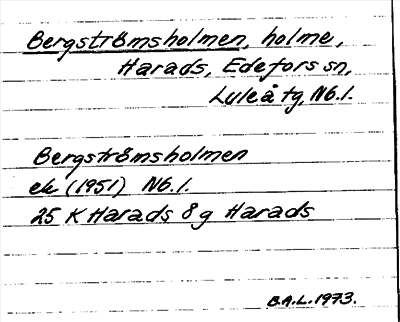 Bergströmsholmen, holme,
Harads, Edefors sn,
Luleå tg, Nb.l.
Bergströmsholmen
ek (1951) Nb.l.
25 K Harads 8 g Harads
B.A.L. 1973.